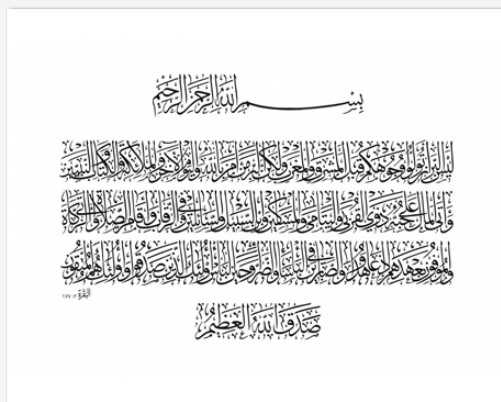 بِسْمِ اللَّهِ الرَّحْمَنِ الرَّحِيمِ
لَيْسَ الْبِرَّ أَنْ تُوَلُّوا وُجُوهَكُمْ قِبَلَ الْمَشْرِقِ وَالْمَغْرِبِ وَلَكِنَّ الْبِرَّ مَنْ آمَنَ بِاللَّهِ وَالْيَوْمِ الْآخِرِ وَالْمَلَائِكَةِ وَالْكِتَابِ وَالنَّبِيِّينَ
وَآتَى الْمَالَ عَلَى حُبِّهِ ذَوِي الْقُرْبَى وَالْيَتَامَى وَالْمَسَاكِينَ وَابْنَ السَّبِيلِ وَالسَّائِلِينَ وَفِي الرِّقَابِ وَأَقَامَ الصَّلَاةَ وَآتَى الزَّكَاةَ
وَالْمُوفُونَ بِعَهْدِهِمْ إِذَا عَاهَدُوا وَالصَّابِرِينَ فِي الْبَأْسَاءِ وَالضَّرَّاءِ وَحِينَ الْبَأْسِ أُولَئِكَ الَّذِينَ صَدَقُوا وَأُولَئِكَ هُمُ الْمُتَّقُونَ
البقرة ٢: ١٧٧
صَدَقَ اللَّهُ الْعَظِيمُ